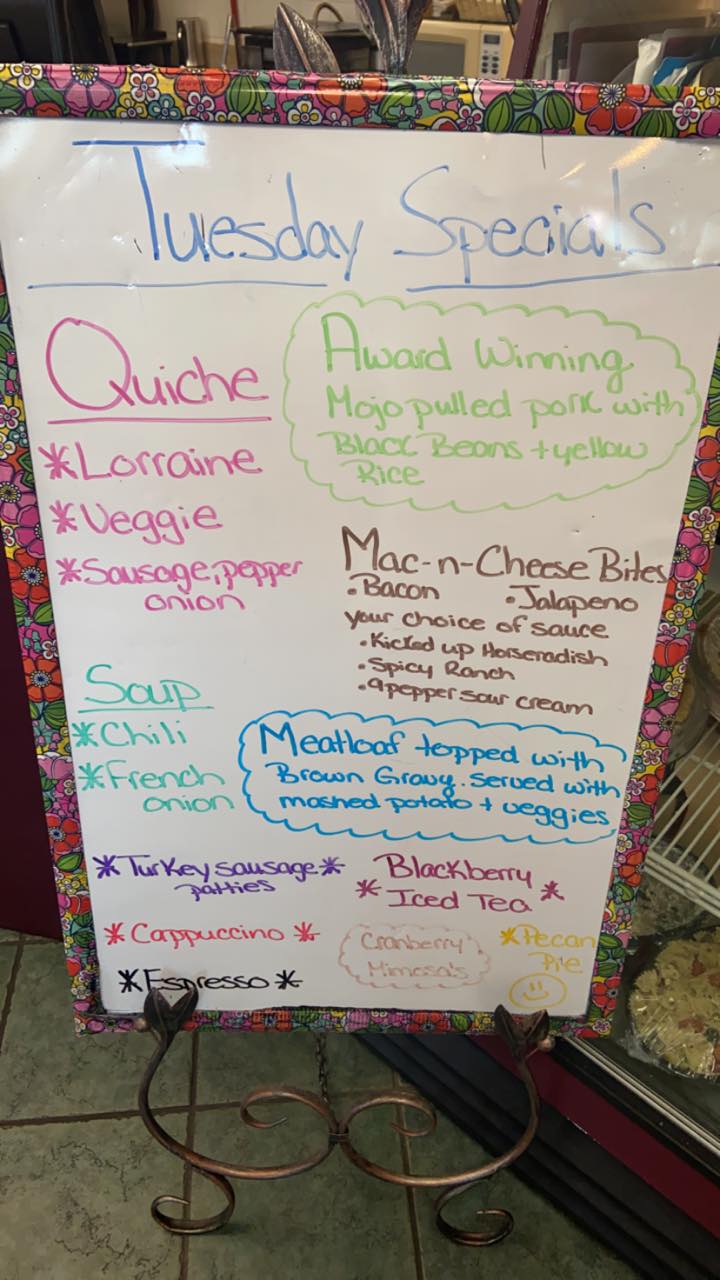 Tuesday Specials
Quiche
*Lorraine
*Veggie
*Sausage, pepper
onion
Award Winning
Mojo pulled pork with
Black Beans + yellow
Rice
Mac-n-Cheese Bites
•Bacon •Jalapeno
your choice of sauce
•Kicked up Horseradish
•Spicy Ranch
•9pepper sour cream
Soup
*Chili
*French
onion
Meatloaf topped with
Brown Gravy. served with
mashed potato + veggies
*Turkey sausage*
patties
Blackberry
* Iced Tea *
*Cappuccino *
Cranberry
Mimosa's
*Pecan
Pie
*Espresso*